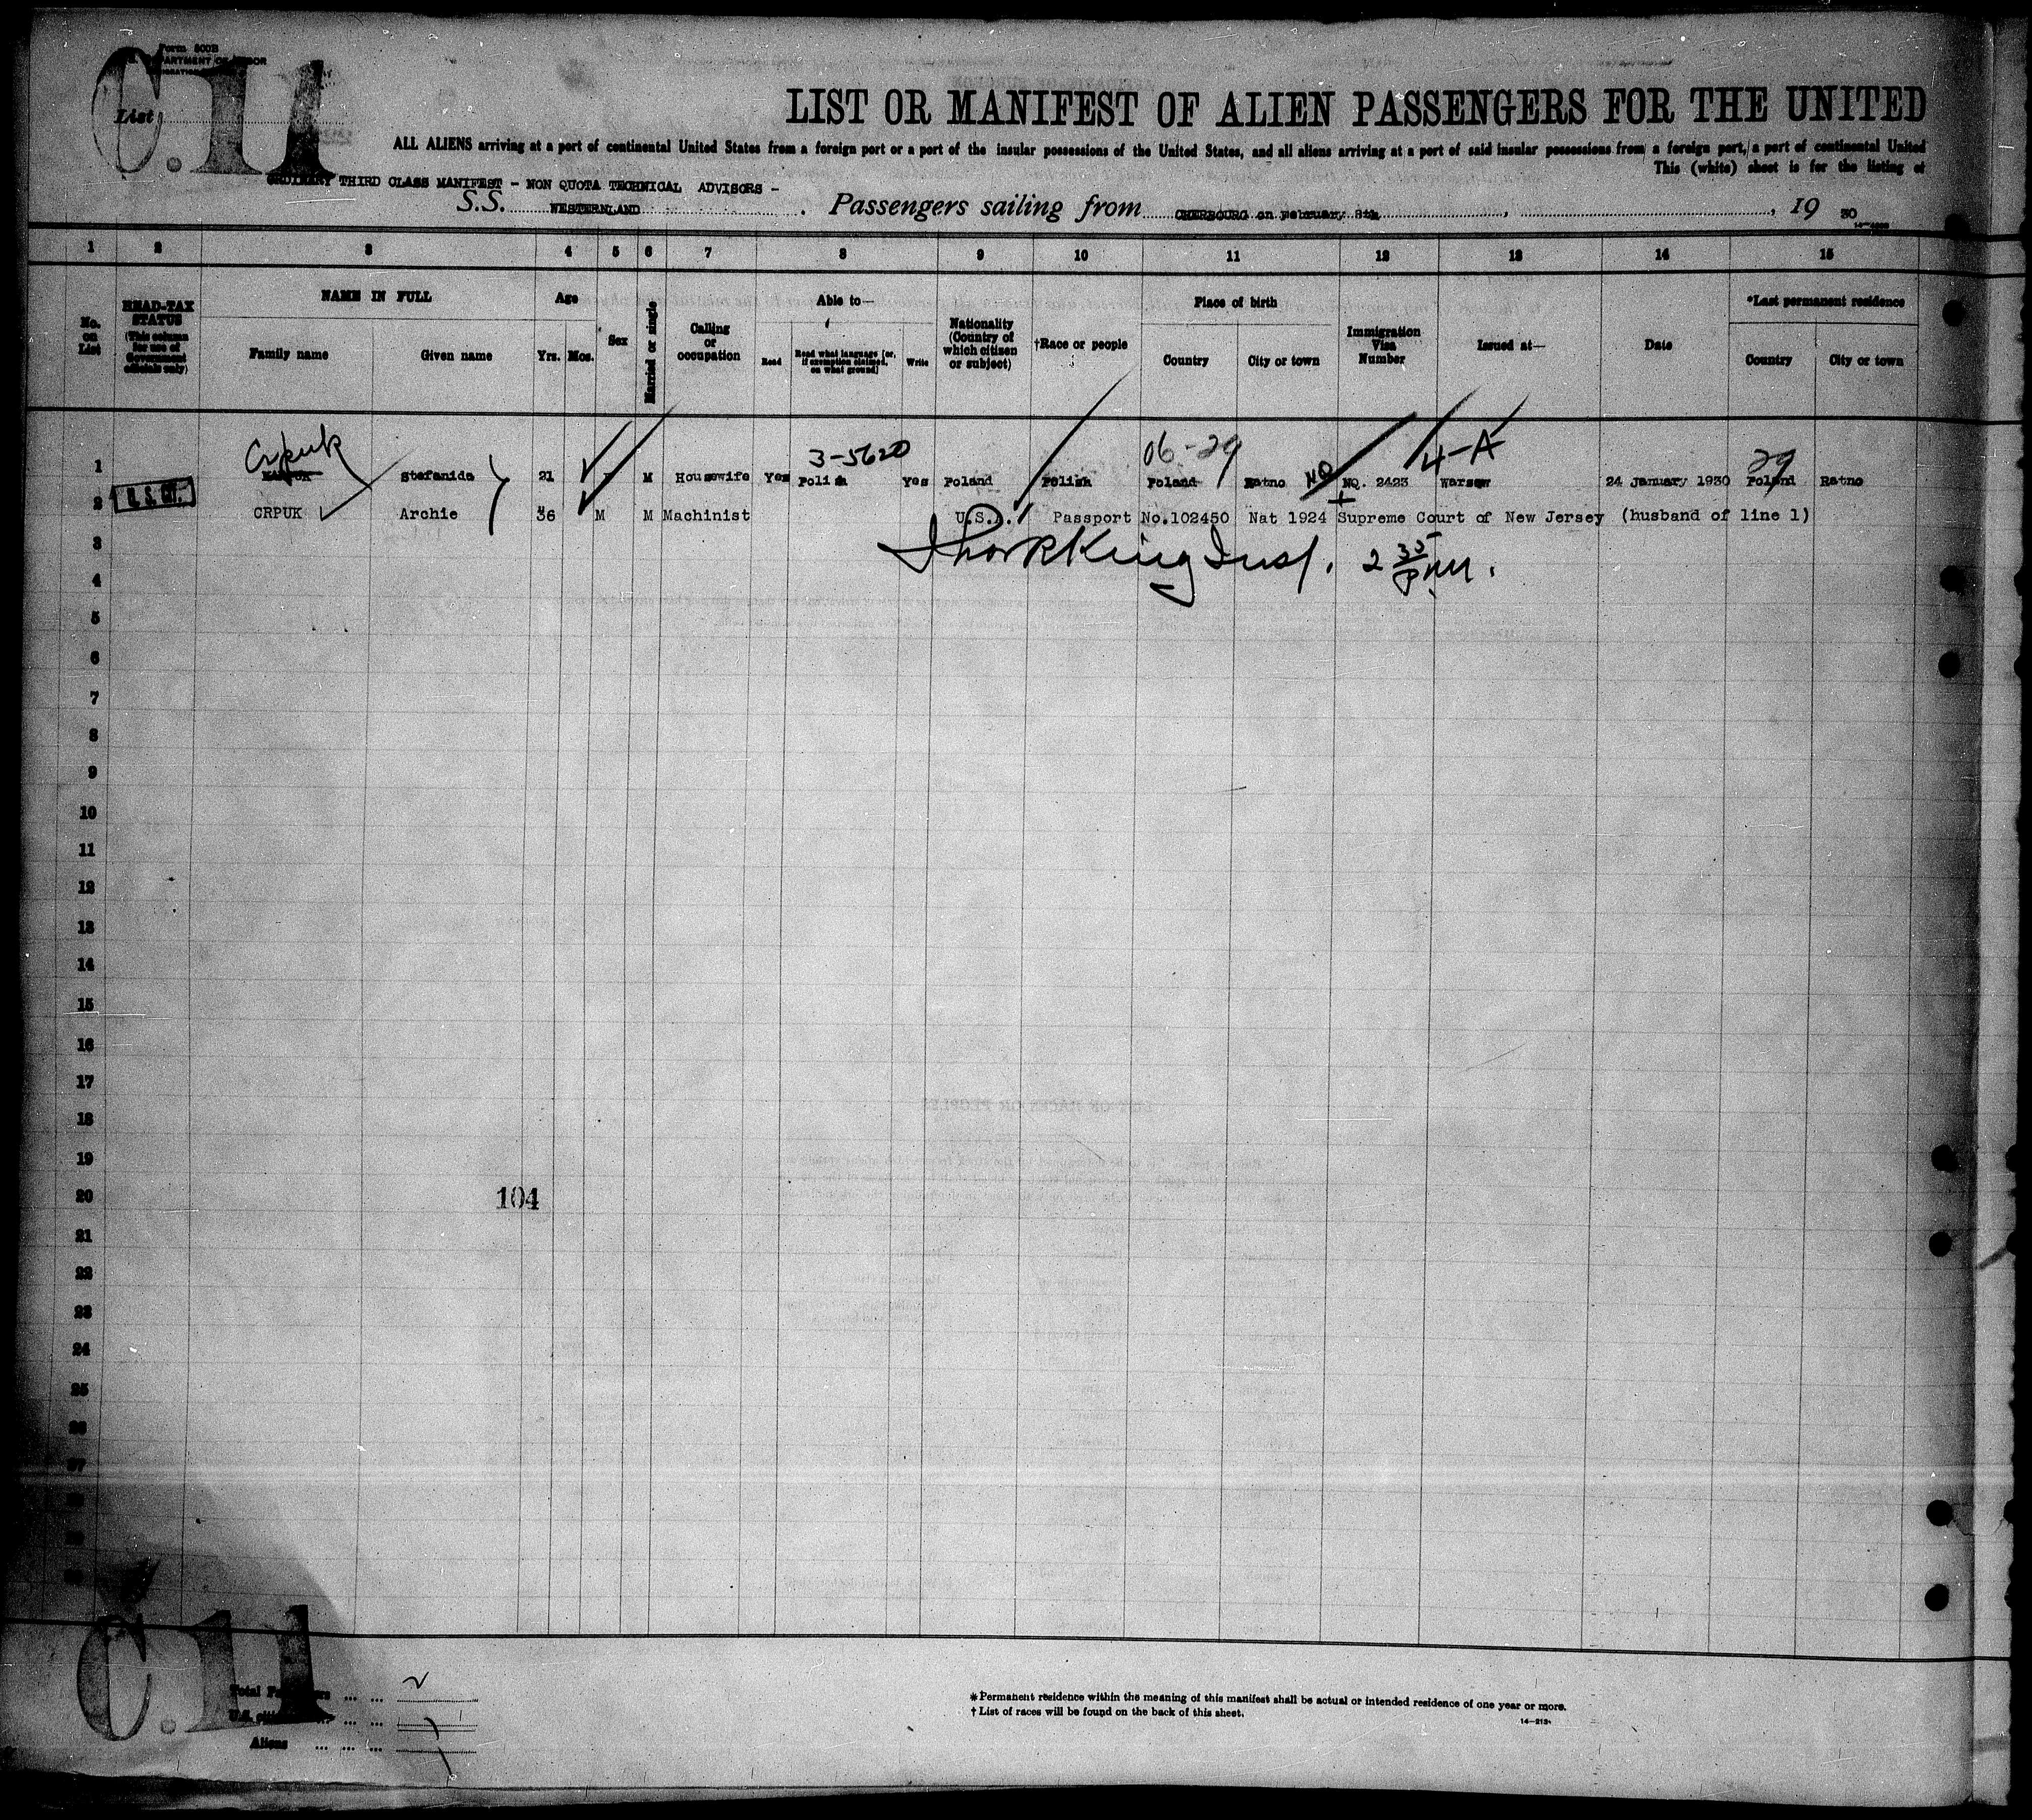 Form 500B
DEPARTMENT OF LABOR
C.11
List
LIST OR MANIFEST OF ALIEN PASSENGERS FOR THE UNITED
ALL ALIENS arriving at a port of continental United States from a foreign port or a port of the insular possessions of the United States, and all aliens arriving at a port of said insular possessions from a foreign port, a port of continental United
This (white) sheet is for the listing of
ORDINARY THIRD CLASS MANIFEST - NON QUOTA TECHNICAL ADVISORS -
S.S. WESTERNLAND . Passengers sailing from CHERBOURG on February 8th , , 19 30
1 2 3 4 5 6 7 8 9 10 11 12 13 14 15
No. on List
HEAD-TAX STATUS (This column for use of Government officials only)
NAME IN FULL
Family name Given name
Age
Yrs. Mos.
Sex
Married or single
Calling or occupation
Able to—
Read Read what language [or, if exemption claimed, on what ground] Write
Nationality (Country of which citizen or subject)
†Race or people
Place of birth
Country City or town
Immigration Visa Number
Issued at—
Date
*Last permanent residence
Country City or town
Crpuk 3-5620 06-29 NQ 4-A 29
1 Stefanida 21 M Housewife Yes Polish Yes Poland Polish Poland Ratno NQ. 2423 Warsaw 24 January 1930 Poland Ratno
2 U.S. CIT. CRPUK Archie 36 M M Machinist U.S. Passport No.102450 Nat 1924 Supreme Court of New Jersey (husband of line 1)
Insp. 2 35 PM.
3
4
5
6
7
8
9
10
11
12
13
14
15
16
17
18
19
20 104
21
22
23
24
25
26
27
C.11
Total Passengers ... ... 2
U.S. citizens ... ... 1
Aliens ... ... ... 1
* Permanent residence within the meaning of this manifest shall be actual or intended residence of one year or more.
† List of races will be found on the back of this sheet.